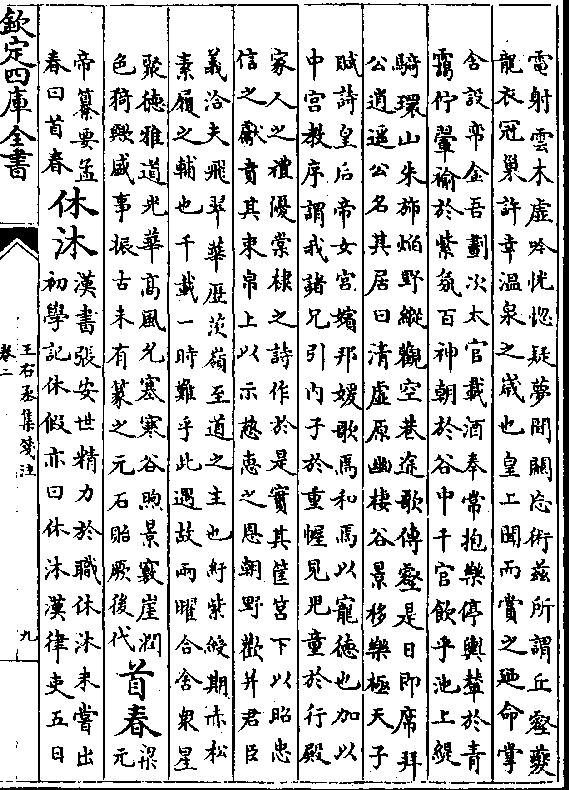 電射雲木虛吟恍惚疑夢間關忘術茲所謂丘壑夔
龍衣冠巢許幸溫泉之歲也皇上聞而賞之廼命掌
舍設帟金吾劃次太官載酒奉常抱樂停輿輦於青
靄佇翬褕於紫氛百神朝於谷中千官飲乎池上緹
騎環山朱斾焰野縱觀空巷途歌傳壑是日即席拜
公逍遥公名其居曰清虛原幽棲谷景移樂極天子
賦詩皇后帝女宮嬪邦媛歌焉和焉以寵德也加以
中宮教序謂我諸兄引內子於重幄見兒童於行殿
家人之禮優棠棣之詩作於是實其筐筥下以昭忠
信之獻賁其束帛上以示慈惠之恩朝野歡并君臣
義洽夫飛翠華歷茨嶺至道之主也紆紫綬期赤松
素履之輔也千載一時難乎此遇故兩曜合舍衆星
聚德雅道光華高風允塞寒谷煦景竅崖潤
色猗歟盛事振古未有篆之元石貽厥後代
首春
梁元
帝纂要孟
春曰首春
休沐
漢書張安世精力於職休沐未嘗出
初學記休假亦曰休沐漢律吏五日
欽定四庫全書
王右丞集箋注
卷二
九